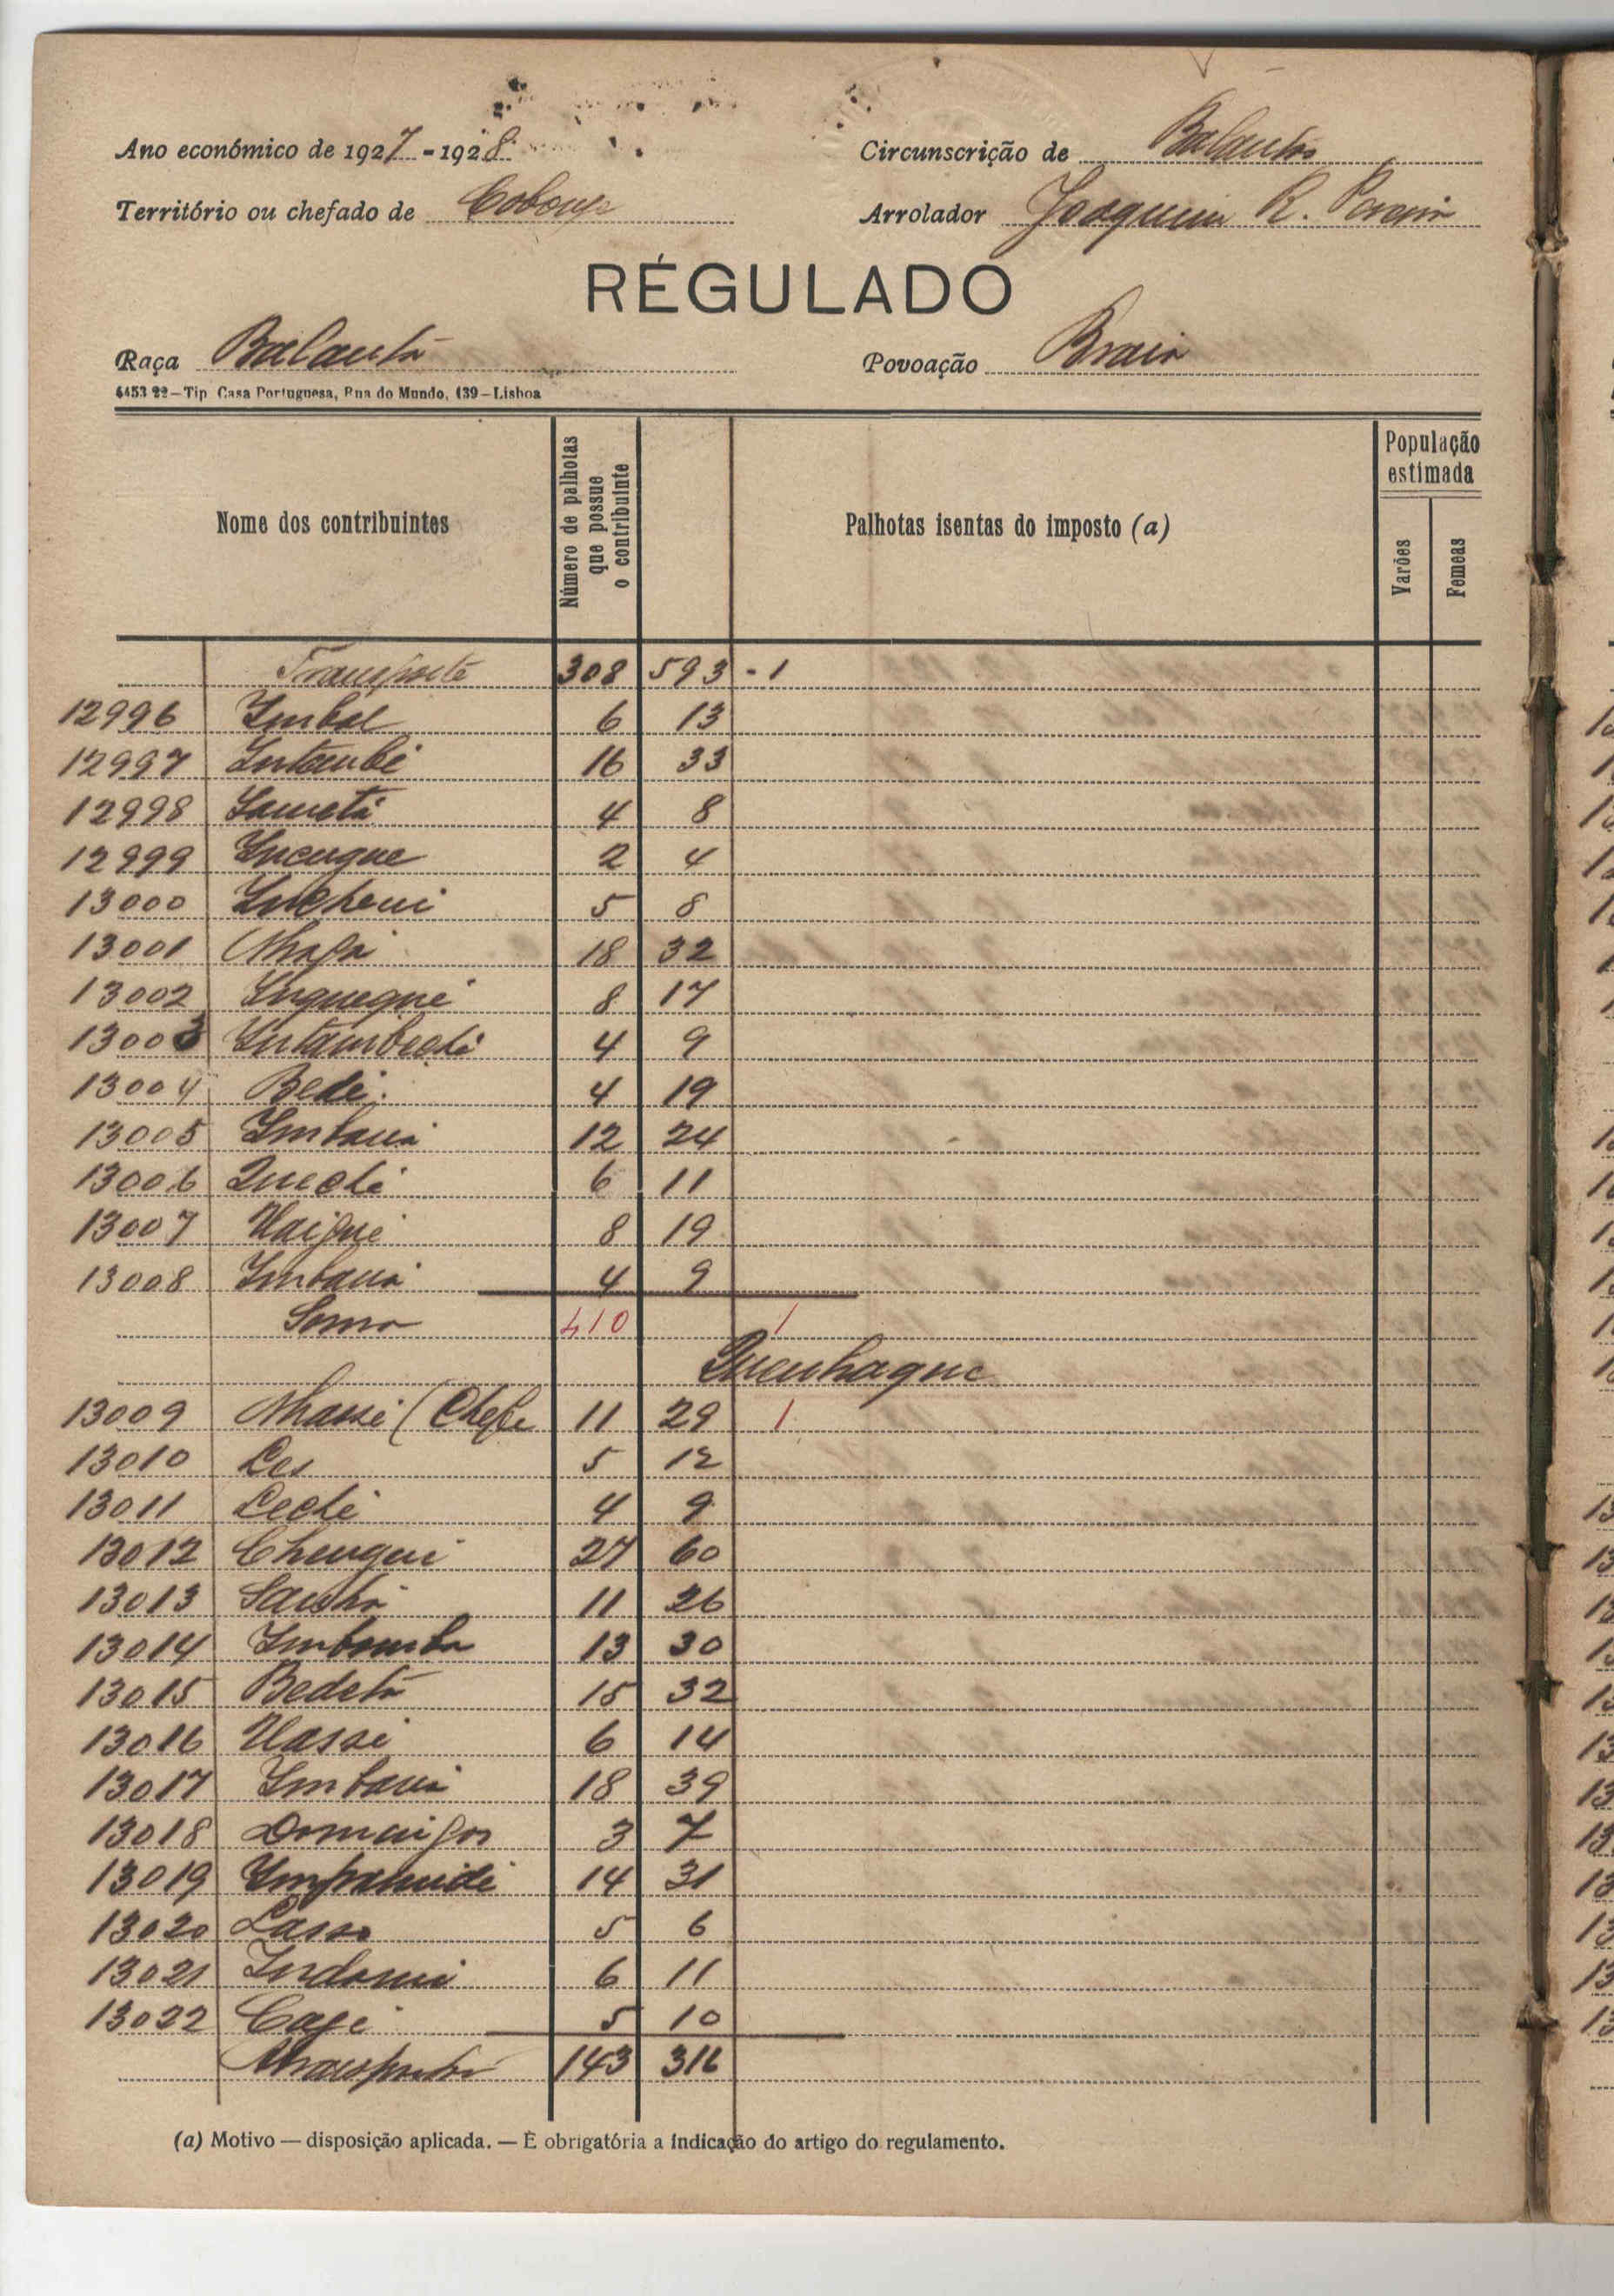 Ano económico de 1927 - 1928
Circunscrição de Balantas
Território ou chefado de
Arrolador Joaquim R. Pereira
RÉGULADO
Raça Balanta
Povoação Braia
6453 22—Tip Casa Portuguesa, Rua do Mundo, 139—Lisboa
Nome dos contribuintes
Número de palhotas que possue o contribuinte
Palhotas isentas do imposto (a)
População estimada
Varões
Femeas
Transporte 308 593 - 1
12996 Imbal 6 13
12997 Intambé 16 33
12998 4 8
12999 Incugue 2 4
13000 5 8
13001 18 32
13002 Inquequé 8 17
13003 4 9
13004 Bedé 4 19
13005 Imbana 12 24
13006 6 11
13007 8 19
13008 Imbana 4 9
Soma 410 1
Quenhaque
13009 Nhassé (Chefe 11 29 1
13010 5 12
13011 4 9
13012 27 60
13013 Sanhá 11 26
13014 Imbomba 13 30
13015 Bedetá 15 32
13016 6 14
13017 Imbana 18 39
13018 Domingos 3 7
13019 14 31
13020 Lasso 5 6
13021 6 11
13022 5 10
Transporte 143 316
(a) Motivo — disposição aplicada. — É obrigatória a indicação do artigo do regulamento.